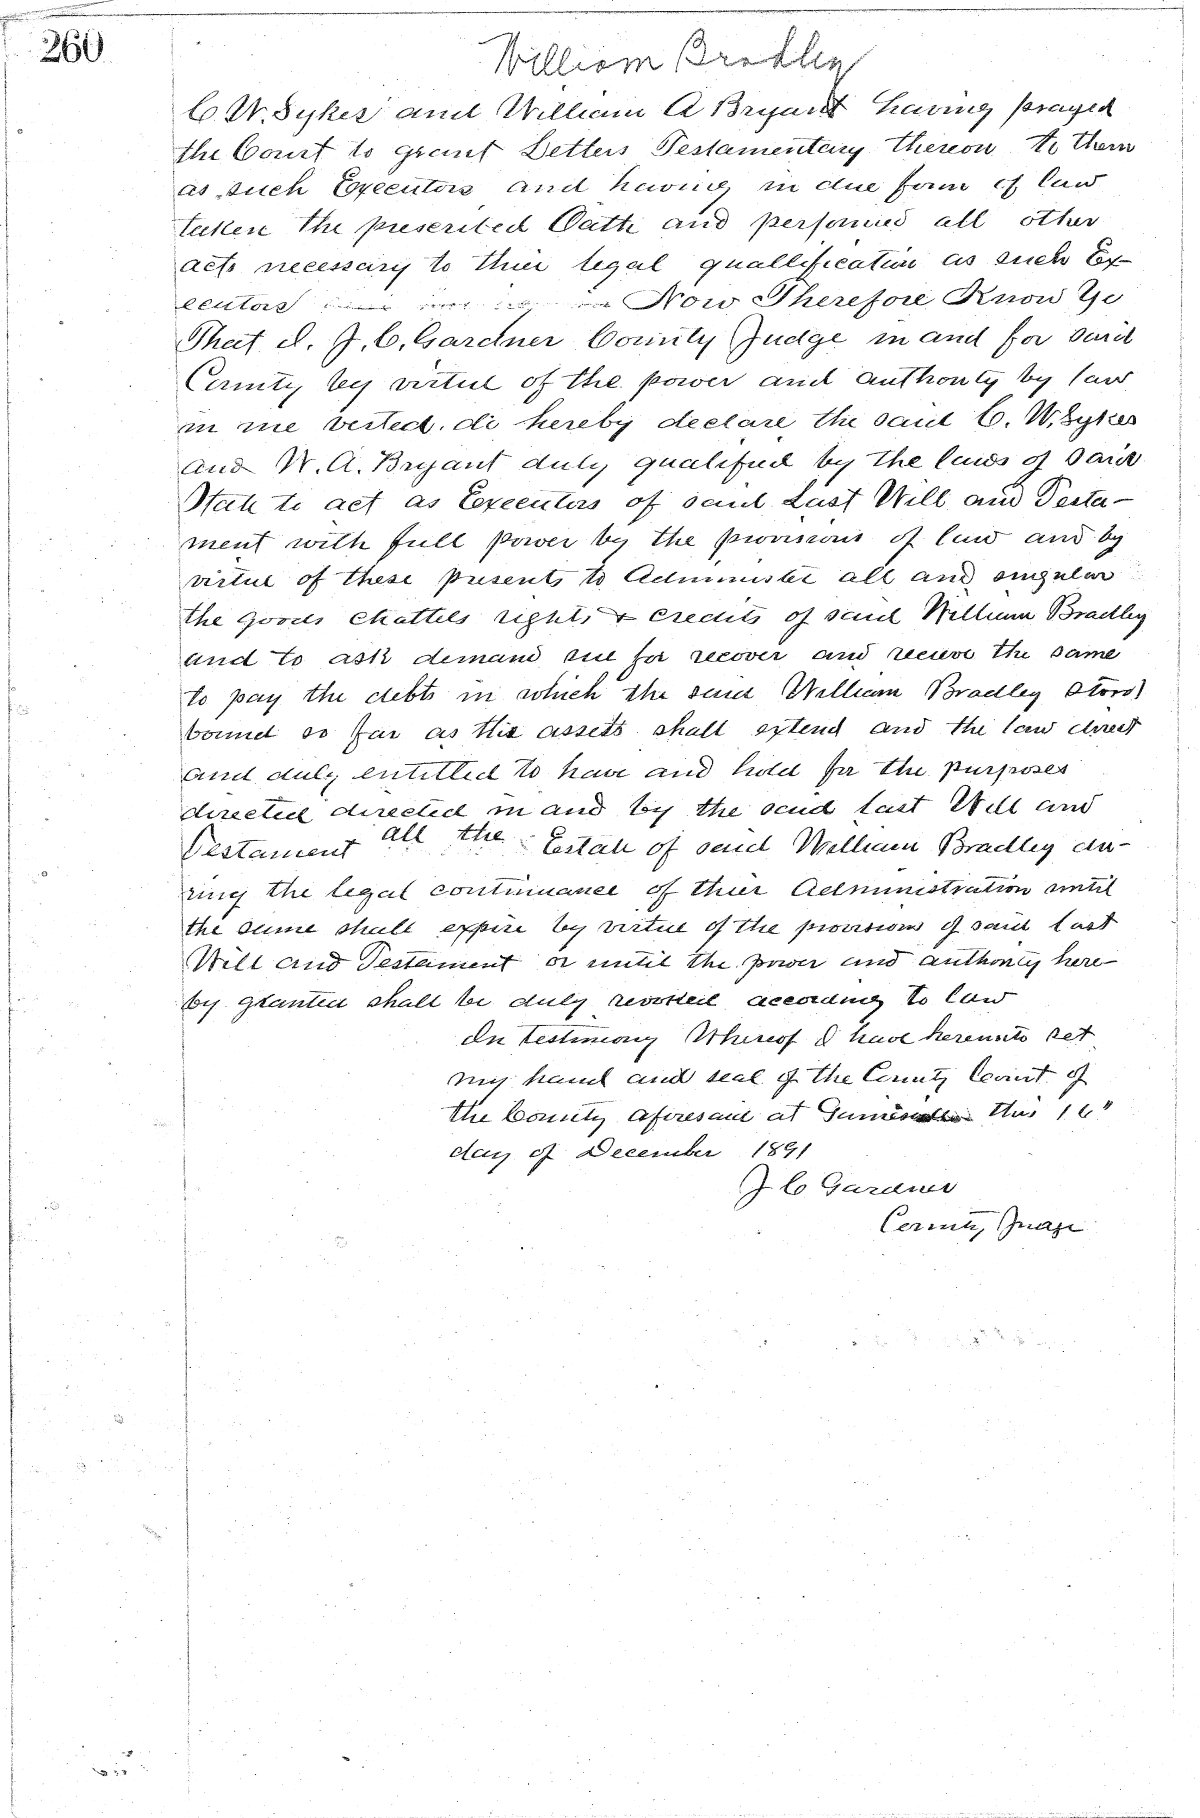 260
William Bradley
C. W. Sykes and William A Bryant having prayed
the Court to grant Letters Testamentary thereon to them
as such Executors and having in due form of law
taken the prescribed Oath and performed all other
acts necessary to thier legal quallification as such Ex-
ecutors Now Therefore Know Ye
That I. J. C. Gardner County Judge in and for said
County by virtue of the power and authority by law
in me vested. do hereby declare the said C. W. Sykes
and W. A. Bryant duly qualified by the laws of said
State to act as Executors of said Last Will and Testa-
ment with full power by the provisions of law and by
virtue of these presents to Administer all and singular
the goods chattels rights & credits of said William Bradley
and to ask demand sue for recover and recieve the same
to pay the debts in which the said William Bradley stood
bound so far as the assets shall extend and the law direct
and duly entitled to have and hold for the purposes
directed directed in and by the said last Will and
Testament all the Estate of said William Bradley du-
ring the legal continuance of thier Administration until
the same shall expire by virtue of the provisions of said last
Will and Testament or until the power and authority here-
by granted shall be duly revoked according to law
In testimony Whereof I have hereunto set
my hand and seal of the County Court of
the County aforesaid at this 16"
day of December 1891
J C Gardner
County Judge